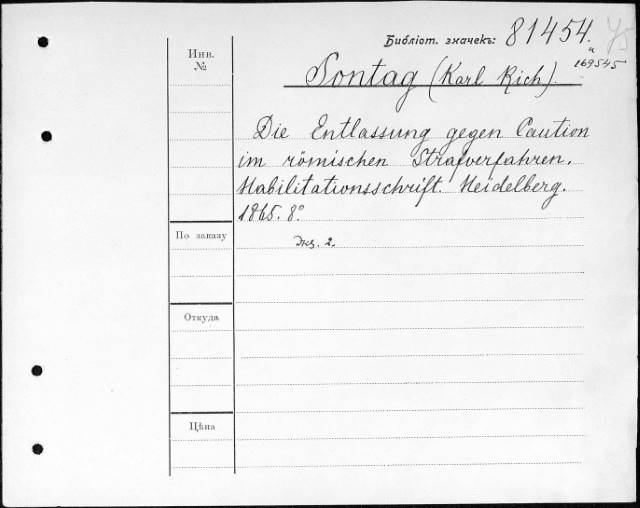 Библіот. значекъ: 81454.
и
169545
Инв.
№
Sontag (Karl Rich).
Die Entlassung gegen Caution
im römischen Strafverfahren.
Habilitationsschrift. Heidelberg.
1865. 8°.
По заказу
Экз. 2.
Откуда
Цѣна